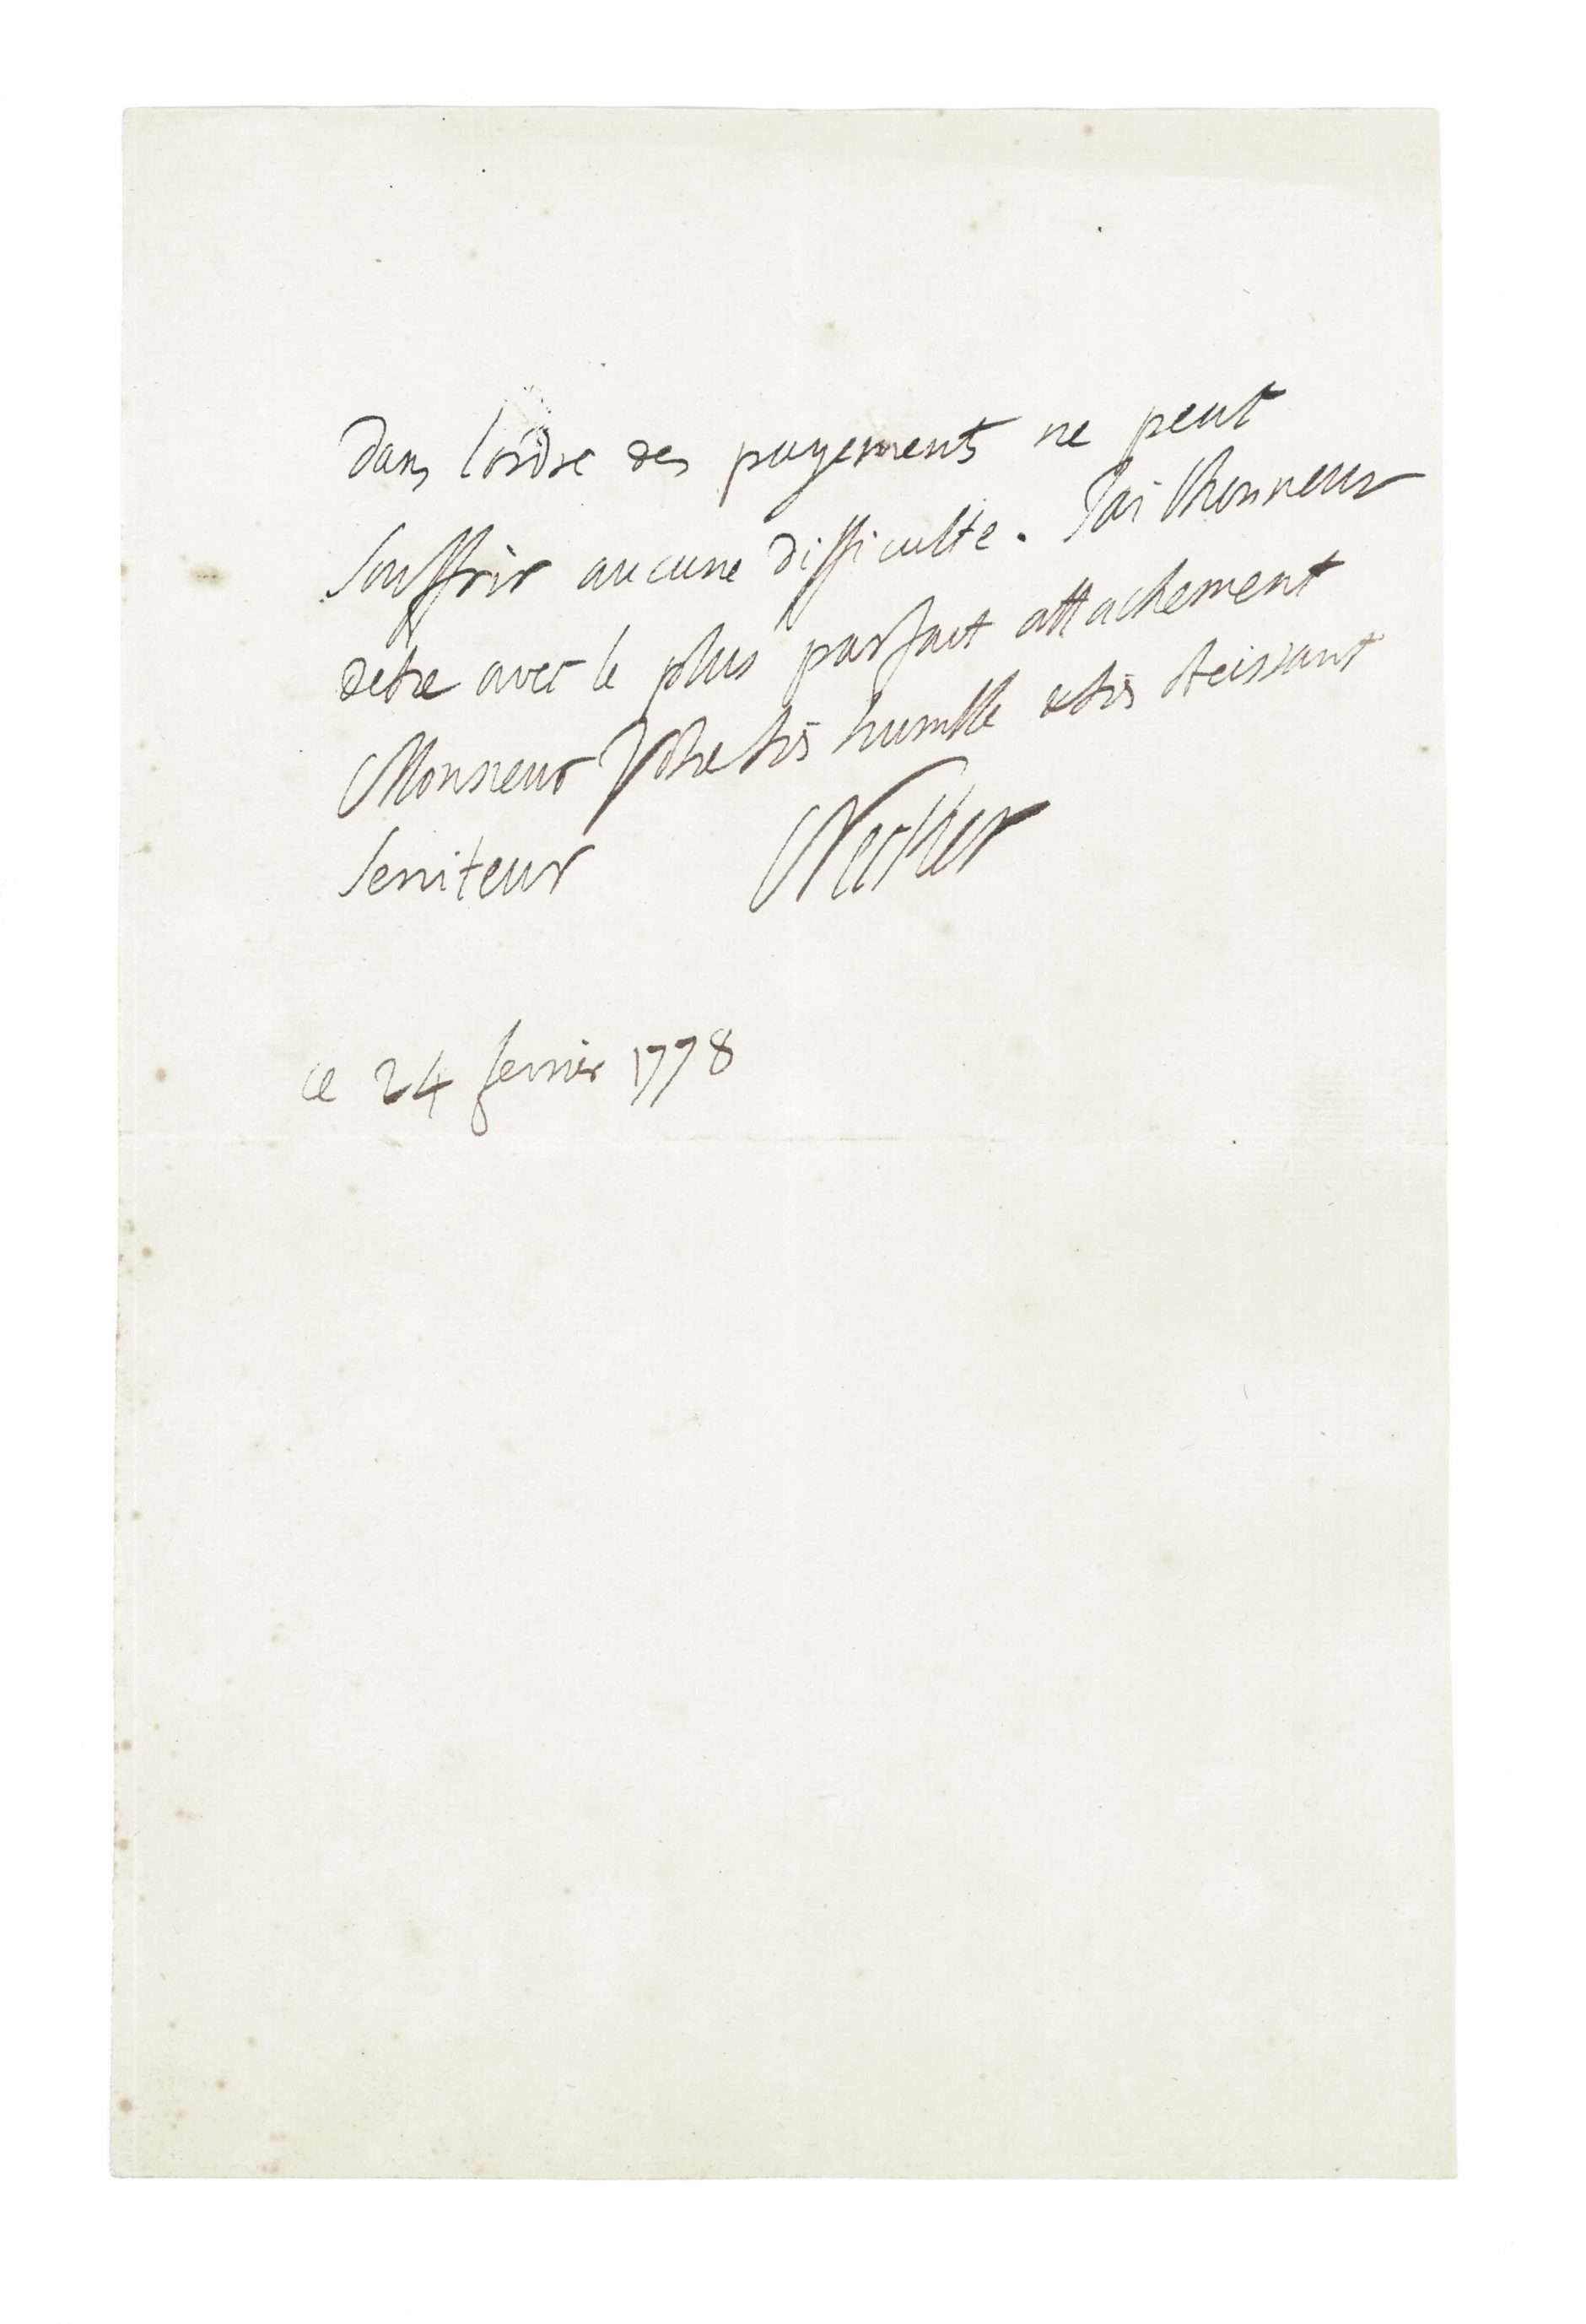 dans lordre des payements ne peut
souffrir aucune difficulte. Jai lhonneur
detre avec le plus parfait attachement
Monsieur Votre tres humble & tres obeissant
serviteur Necker
ce 24 fevrier 1778